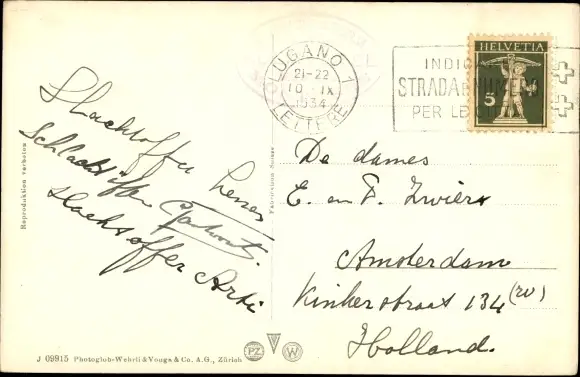 LUGANO 1
21-22
10·IX
1934
LETTERE
INDIC
STRADA E NUMERO
PER LE
HELVETIA
5
Slachtoffer
Schlachtöffer
Slachtoffer
De dames
E. en F. Zwiers
Amsterdam
Kinkerstraat 134 (IV)
Holland.
Reproduktion verboten
Fabrication Suisse
J 09915 Photoglob-Wehrli & Vouga & Co. A.G., Zürich
PZ
W